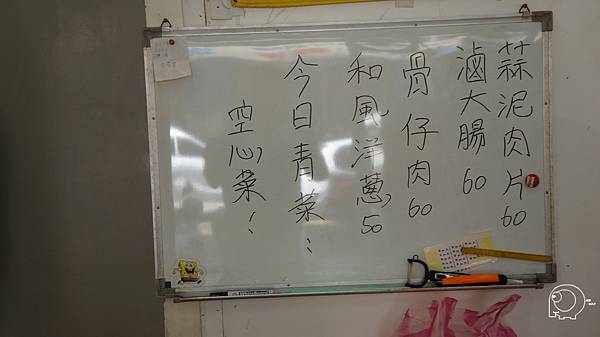 蒜泥肉片60
滷大腸60
骨仔肉60
和風洋蔥50
今日青菜：
空心菜！